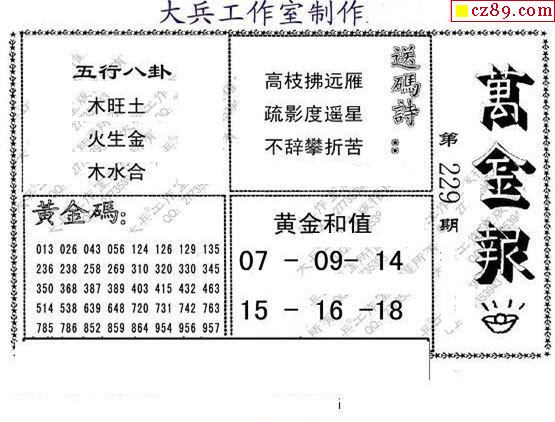 大兵工作室制作
cz89.com
五行八卦
木旺土
火生金
木水合
送碼詩：
高枝拂远雁
疏影度遥星
不辞攀折苦
萬金報
第229期
黃金碼:
013 026 043 056 124 126 129 135
236 238 258 269 310 320 330 345
350 368 387 389 403 415 432 463
514 538 639 648 720 731 742 763
785 786 852 859 864 954 956 957
黄金和值
07 - 09- 14
15 - 16 -18
i